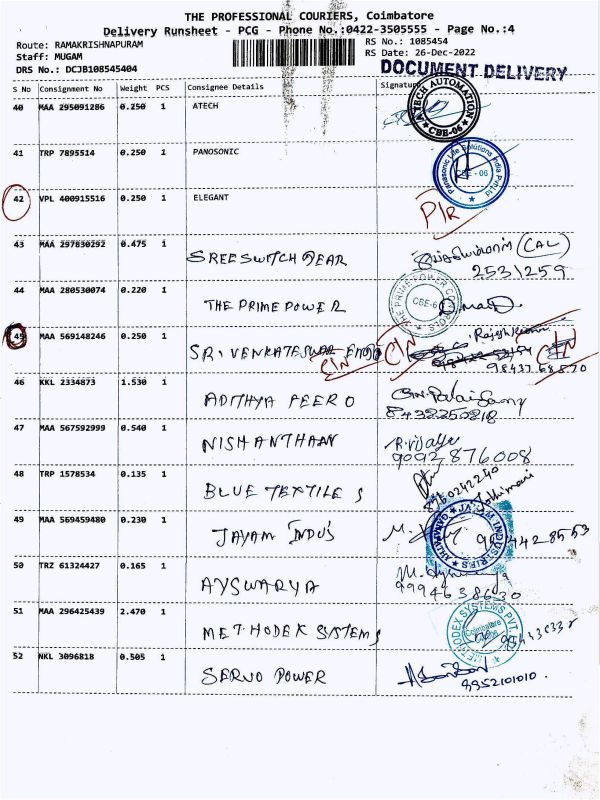 THE PROFESSIONAL COURIERS, Coimbatore
Delivery Runsheet - PCG - Phone No.:0422-3505555 - Page No.:4
Route: RAMAKRISHNAPURAM
Staff: MUGAM
DRS No.: DCJB108545404
RS No.: 1085454
RS Date: 26-Dec-2022
DOCUMENT DELIVERY
S No Consignment No Weight PCS Consignee Details Signature
40 MAA 295091286 0.250 1 ATECH
ATECH AUTOMATION
CBE-06
41 TRP 7895514 0.250 1 PANOSONIC
Panasonic Life Solutions India Pvt Ltd
CBE - 06
42 VPL 400915516 0.250 1 ELEGANT
P/R
43 MAA 297830292 0.475 1 SREE SWITCH GEAR
(CAL)
2531259
44 MAA 280530074 0.220 1 THE PRIME POWER
THE PRIME POWER CONTROLS
CBE-6
45 MAA 569148246 0.250 1 SRI VENKATESWAR
C/N C/N C/N
46 KKL 2334873 1.530 1 ADITHYA FEERO
47 MAA 567592999 0.540 1 NISHANTHAAN
R.vijaya
9092876008
48 TRP 1578534 0.135 1 BLUE TEXTILES
8760242240
49 MAA 569459480 0.230 1 JAYAM INDUS
50 TRZ 61324427 0.165 1 AYSWARYA
9994638630
51 MAA 296425439 2.470 1 METHODEK SYSTEMS
METHODEX SYSTEMS PVT.
Coimbatore
52 NKL 3096818 0.505 1 SERVO POWER
9952101010.